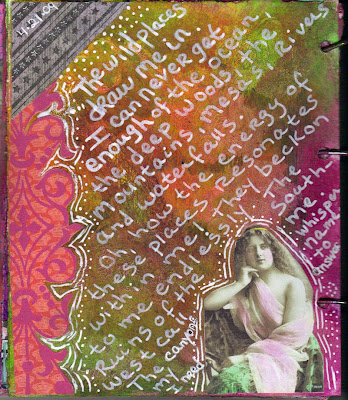 The wild places
draw me in
I can never get
enough of the ocean,
the deep woods, the
mountains, mesas, Rivers
and water falls.
Oh how the energy of
these places Resonates
within me! They beckon
to me endlessly! The
Ruins of the South
west call me
The canyons whisper
my name
I need to answer